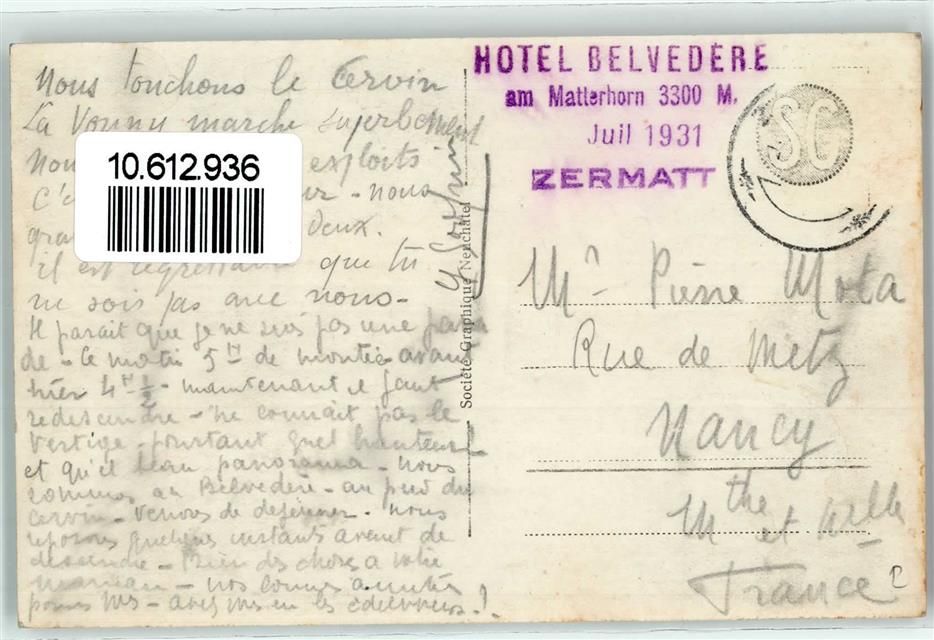 Nous touchons le Cervin
La Vonny marche superbement
Nou exploits
c'a - nous
gra deux.
il est regrettable que tu
ne sois pas avec nous -
Il parait que je ne suis pas une
de - ce matin 5 H de montée avant
hier 4 H 1/2 - maintenant il faut
redescendre - ne connait pas le
vertige - pourtant quel hauteur
et qu'el beau panorama - nous
sommes au Belvedere - au pied du
Cervin - venons de dejeuner - nous
reposons quelques instants avant de
descendre - Bien des choses a votre
maman - nos bonnes amitiés
pour
10.612.936
Société Graphique Neuchâtel
HOTEL BELVEDÈRE
am Matterhorn 3300 M.
Juil 1931
ZERMATT
SG
Mr Pierre Mota
Rue de Metz
Nancy
Mthe et Mlle
France